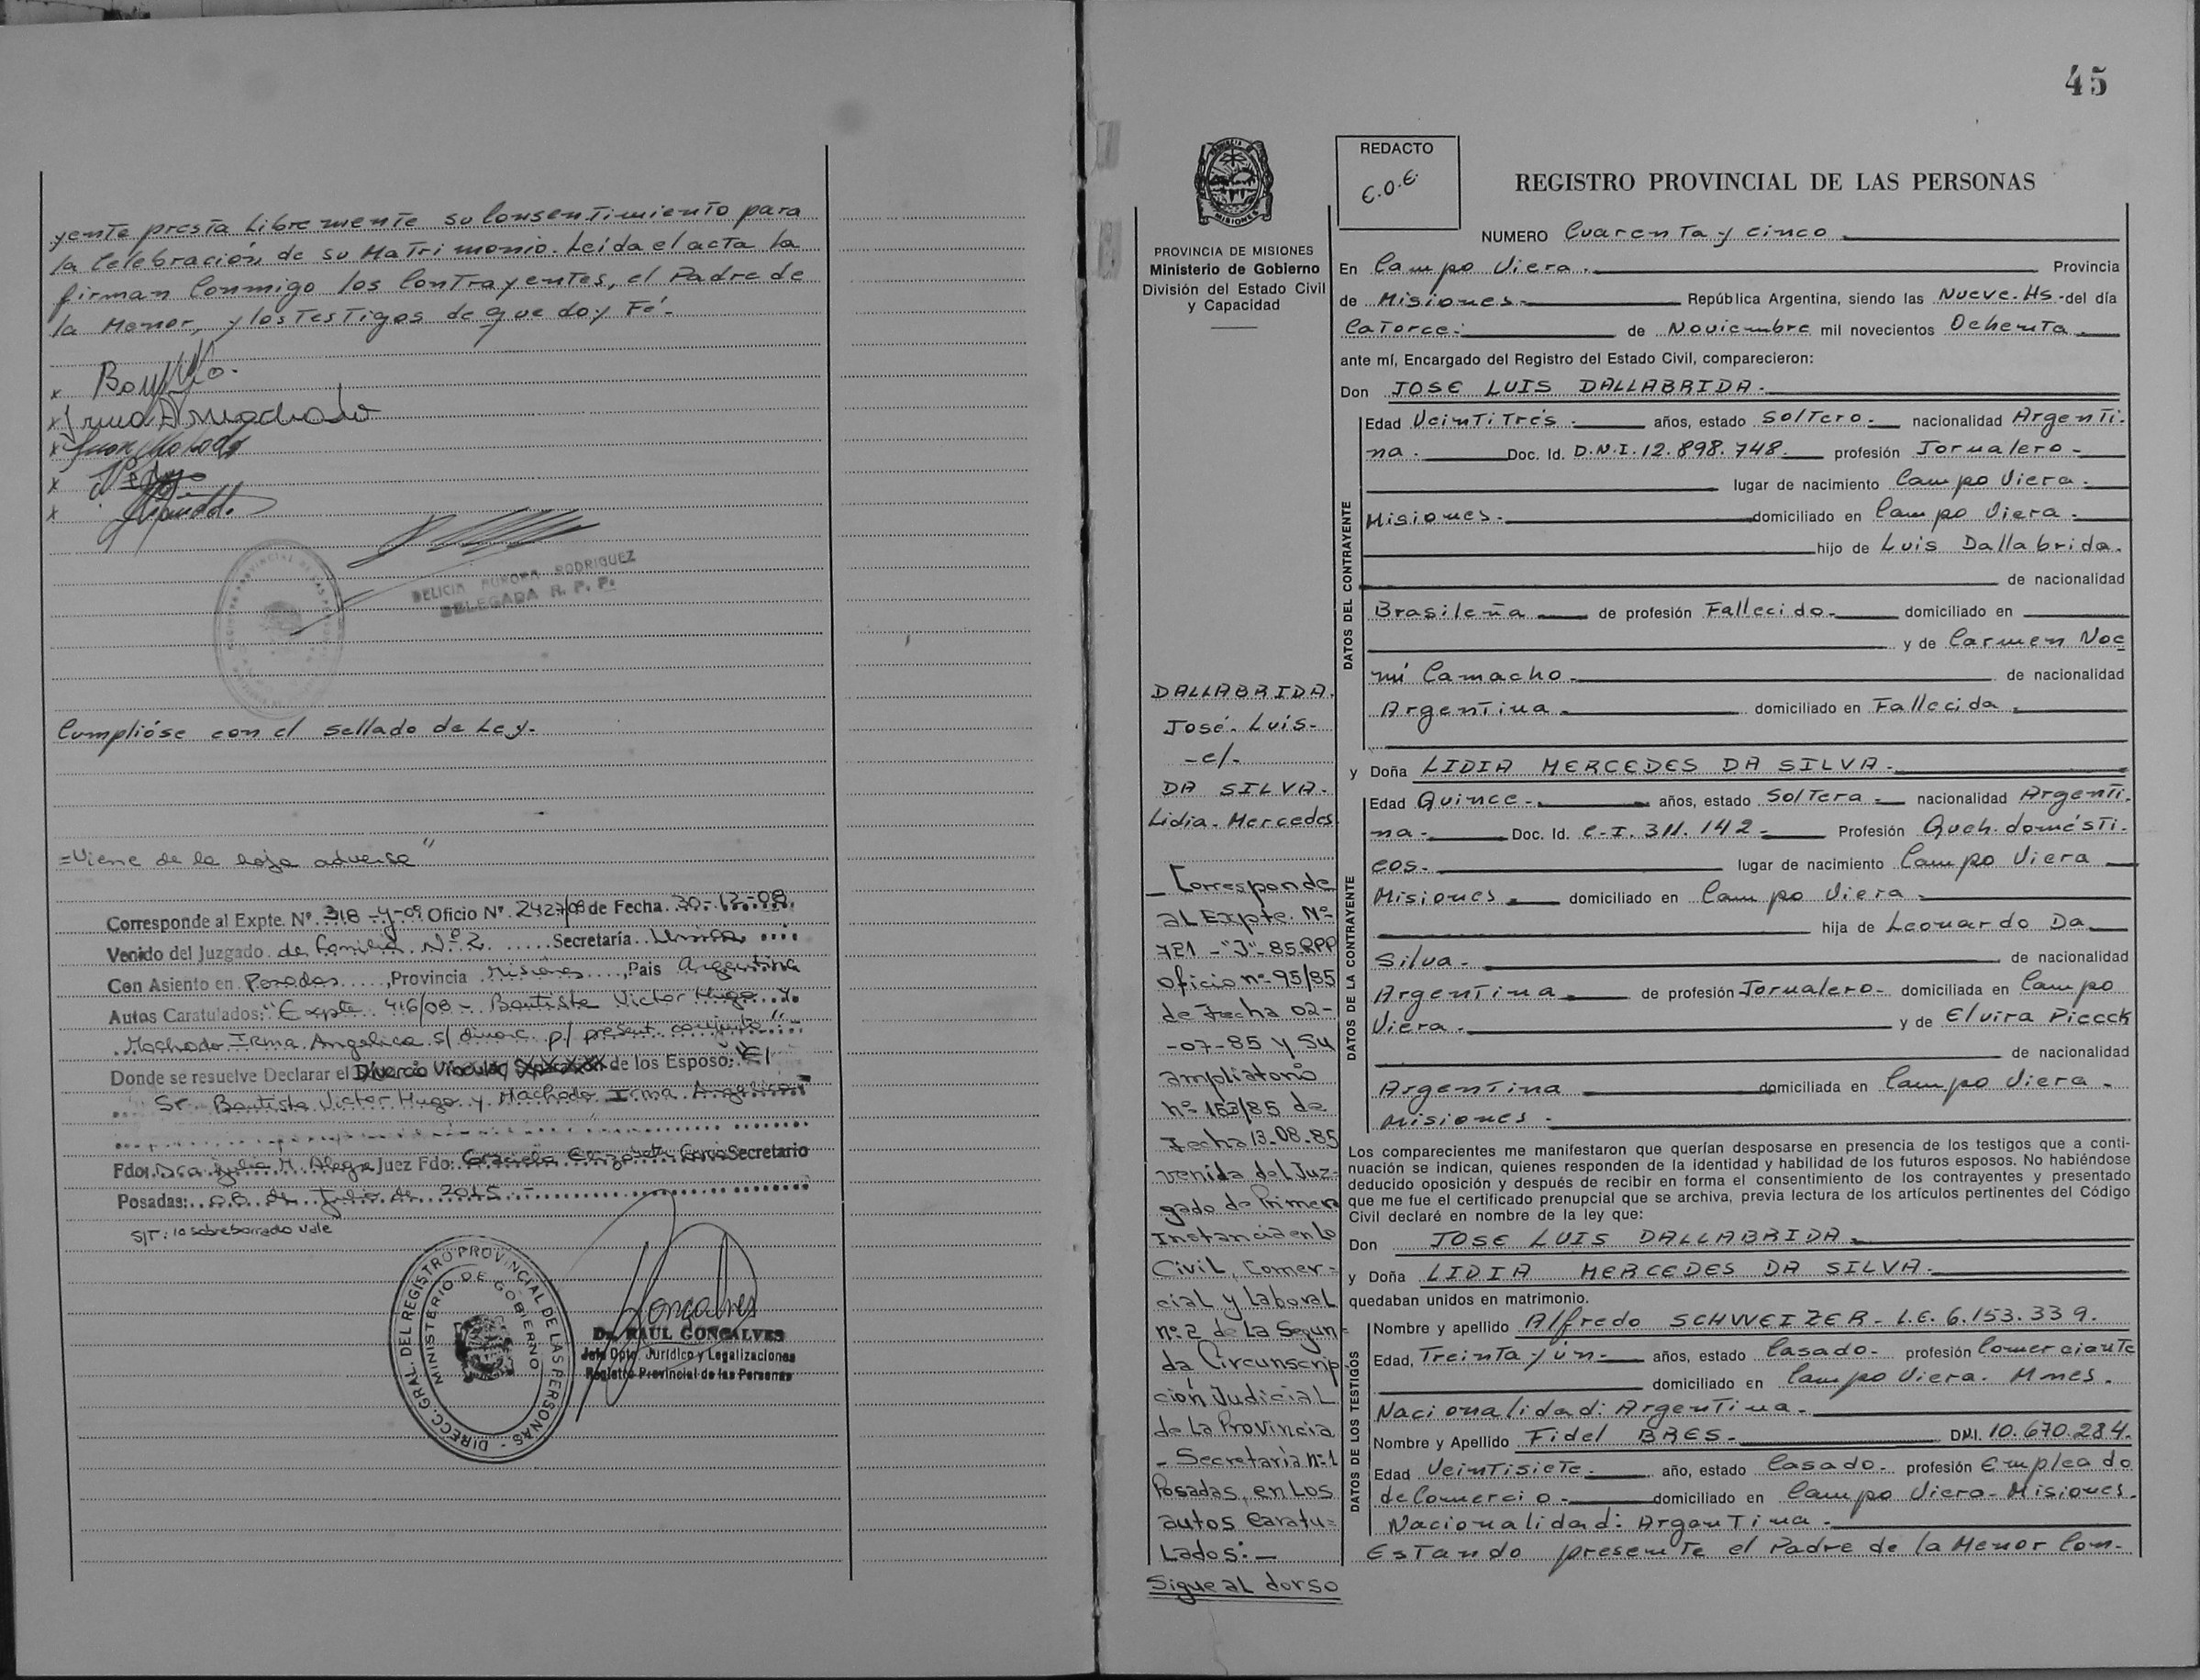 yente presta libremente su Consentimiento para
la Celebración de su Matrimonio. Leída el acta la
firman Conmigo los Contrayentes, el Padre de
la Menor, y los Testigos de que doy Fé.-
x
x Irma A Machado
x Juan Machado
x
x
DELICIA AURORA RODRIGUEZ
DELEGADA R. P. P.
Cumplióse con el sellado de Ley.-
=Viene de la hoja adversa"
Corresponde al Expte. Nº 318-4-09 Oficio Nº 2427/08 de Fecha 30-12-08
Venido del Juzgado de Familia Nº 2 Secretaría Unica
Con Asiento en Posadas, Provincia Misiones, Pais Argentina
Autos Caratulados: "Expte 416/08 - Bautista Victor Hugo y
Machado Irma Angelica s/ divorc. p/ present. conjunta"
Donde se resuelve Declarar el Divorcio Vincular de los Esposo: El
Sr. Bautista Victor Hugo y Machado Irma Angelica
Fdo: Dra Julia M. Alegre Juez Fdo: Graciela Secretario
Posadas: 08 de Julio de 2015 -
S/T: lo sobreborrado vale
DIRECC. GRAL. DEL REGISTRO PROVINCIAL DE LAS PERSONAS -
MINISTERIO DE GOBIERNO
Dr. RAUL GONCALVES
Jefe Dpto. Jurídico y Legalizaciones
Registro Provincial de las Personas
45
MISIONES
PROVINCIA DE MISIONES
Ministerio de Gobierno
División del Estado Civil
y Capacidad
DALLABRIDA.
José. Luis-
-c/-
DA SILVA.
Lidia. Mercedes
- Corresponde
al Expte. Nº
721 -"J"- 85.RPP
Oficio nº 95/85
de Fecha 02-
-07-85 y su
ampliatorio
nº 153/85 de
Fecha 13-08-85
venida del Juz-
gado de Primera
Instancia en lo
Civil, Comer-
cial y Laboral
nº 2 de La Segun-
da Circunscrip
ción Judicial
de La Provincia
- Secretaría nº 1
Posadas, en Los
autos Caratu=
Lados:-
Sigue al dorso
REDACTO
C.O.E.
REGISTRO PROVINCIAL DE LAS PERSONAS
NUMERO Cuarenta y cinco
En Campo Viera. Provincia
de Misiones.- República Argentina, siendo las Nueve. Hs - del día
Catorce.- de Noviembre mil novecientos Ochenta.
ante mí, Encargado del Registro del Estado Civil, comparecieron:
Don JOSE LUIS DALLABRIDA.
DATOS DEL CONTRAYENTE
Edad Veintitrés.- años, estado Soltero.- nacionalidad Argenti-
na. Doc. Id. D.N.I. 12.898.748. profesión Jornalero-
lugar de nacimiento Campo Viera.
Misiones.- domiciliado en Campo Viera.
hijo de Luis Dallabrida.
de nacionalidad
Brasileña de profesión Fallecido.- domiciliado en
y de Carmen Noe
mí Camacho.- de nacionalidad
Argentina.- domiciliado en Fallecida.
y Doña LIDIA MERCEDES DA SILVA.
DATOS DE LA CONTRAYENTE
Edad Quince.- años, estado Soltera.- nacionalidad Argenti-
na.- Doc. Id. C.I. 311.142.- Profesión Queh. domésti-
cos. lugar de nacimiento Campo Viera
Misiones.- domiciliado en Campo Viera.
hija de Leonardo Da
Silva.- de nacionalidad
Argentina.- de profesión Jornalero- domiciliada en Campo
Viera.- y de Elvira Piecck
de nacionalidad
Argentina domiciliada en Campo Viera.
Misiones.
Los comparecientes me manifestaron que querían desposarse en presencia de los testigos que a conti-
nuación se indican, quienes responden de la identidad y habilidad de los futuros esposos. No habiéndose
deducido oposición y después de recibir en forma el consentimiento de los contrayentes y presentado
que me fue el certificado prenupcial que se archiva, previa lectura de los artículos pertinentes del Código
Civil declaré en nombre de la ley que:
Don JOSE LUIS DALLABRIDA.
y Doña LIDIA MERCEDES DA SILVA.
quedaban unidos en matrimonio.
DATOS DE LOS TESTIGOS
Nombre y apellido Alfredo SCHWEIZER - L.E. 6.153.339.
Edad, Treinta y ún- años, estado Casado- profesión Comerciante
domiciliado en Campo Viera. Mnes.
Nacionalidad: Argentina.
Nombre y Apellido Fidel BRES- DNI. 10.670.284.
Edad Veintisiete.- año, estado Casado- profesión Empleado
de Comercio.- domiciliado en Campo Viera- Misiones.
Nacionalidad: Argentina.
Estando presente el Padre de la Menor Con-